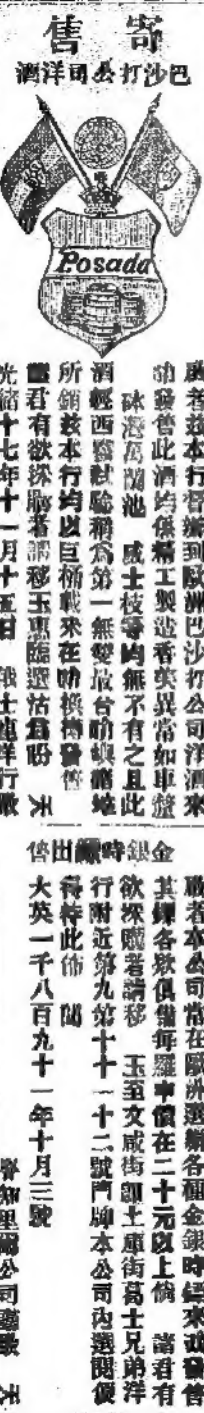 寄售
巴沙打公司洋酒
Posada
啟者茲本行督辦到歐洲巴沙打公司洋酒來
叻發售此酒均係精工製造香美異常如車厘
砵湾萬蘭池 威士枝等均無不有之且此
酒經西醫試驗稱為第一無雙最合叻嶼
所銷茲本行均以巨桶載來在叻嶼發售
君有欲採購者請移玉惠臨選沽為盼
光緒十七年十一月十五日 士 洋行啟
金銀時鏢出售
啟者本公司常在歐洲選辦各種金銀時鏢來叻發售
其鏢各欵俱備每羅車價在二十元以上倘 諸君有
欲採購者請移 玉至文咸街 土庫街葛士兄弟洋
行附近第九第十十一十二號門牌本公司內選閱
特此佈 聞
大英一千八百九十一年十月三號
知里爾公司